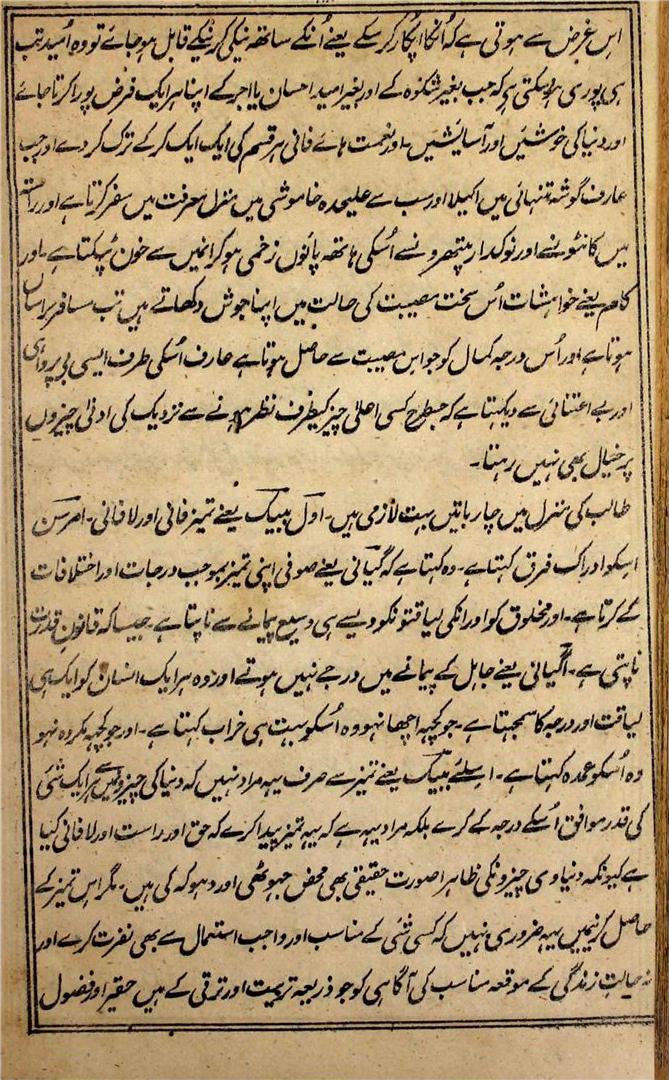 اس غرض سے ہوتی ہے کہ اُنکا اُپکار کر سکے یعنے اُنکے ساتھہ نیکی کرنیکے قابل ہو جائے تو وہ اُمید تب
ہی پوری ہو سکتی ہے کہ جب بغیر شکوہ کے اور بغیر امید احسان یا اجر کے اپنا ہر ایک فرض پورا کرتا جائے
اور دنیا کی خوشیئں اور آسایشیں۔ اور نعمت ہائے فانی ہر قسم کی ایک ایک کرکے ترک کر دے اور جب
عارف گوشہ تنہائی میں اکیلا اور سب سے علیحدہ خاموشی میں منزل معرفت میں سفر کرتا ہے اور راستہ
میں کانٹو نے اور نوکدار پتھرونے اُسکی ہاتھہ پانوں زخمی ہو کر انمیں سے خون ٹپکتا ہے۔ اور
کام یعنے خواہشات اُس سخت مصیبت کی حالت میں اپنا جوش دکھاتے ہیں تب مسافر ہراساں
ہوتا ہے اور اُس درجہ کمال کو جو اس مصیبت سے حاصل ہوتا ہے عارف اُسکی طرف ایسی بی پرواہی
اور بے اعتنائی سے دیکہتا ہے کہ جسطرح کسی اعلیٰ چیز کیطرف نظر ہونے سے نزدیک کی ادنیٰ چیزوں
پر خیال بھی نہیں رہتا۔
طالب کی منزل میں چار باتیں بہت لازمی ہیں۔ اول ببیک یعنے تمیز فانی اور لا فانی۔ امرسن
اسکو ادراک فرق کہتا ہے۔ وہ کہتا ہے کہ گیانی یعنے صوفی اپنی تمیز بموجب درجات اور اختلافات
کے کرتا ہے۔ اور مخلوق کو اور انکی لیاقتونکو ویسے ہی وسیع پیمانے سے ناپتا ہے۔ جیسا کہ قانون قدرت
ناپتی ہے۔ اگیانی یعنے جاہل کے پیمانے میں درجے نہیں ہوتے اور وہ ہر ایک انسان کو ایک ہی
لیاقت اور درجہ کا سمجہتا ہے۔ جو کچہہ اچھا نہو وہ اُسکو بہت ہی خراب کہتا ہے۔ اور جو کچہہ مکروہ نہو
وہ اُسکو عمدہ کہتا ہے۔ اسلئے ببیک یعنے تمیز سے صرف یہہ مراد نہیں کہ دنیا کی چیزونمیں سے ہر ایک شئی
کی قدر موافق اُسکے درجہ کے کرے بلکہ مراد یہہ ہے کہ یہہ تمیز پیدا کرے کہ حق اور راست اور لا فانی کیا
ہے کیونکہ دنیاوی چیزونکی ظاہرا صورت حقیقتی بھی محض جہوٹھی اور دہوکہ کی ہیں۔ مگر اس تمیز کے
حاصل کرنیمیں یہہ ضروری نہیں کہ کسی شئی کے مناسب اور واجب استعمال سے بھی نفرت کرے اور
نہ حالت زندگی کے موقعہ مناسب کی آگاہی کو جو ذریعہ تربیت اور ترقی کے ہیں حقیر اور فضول